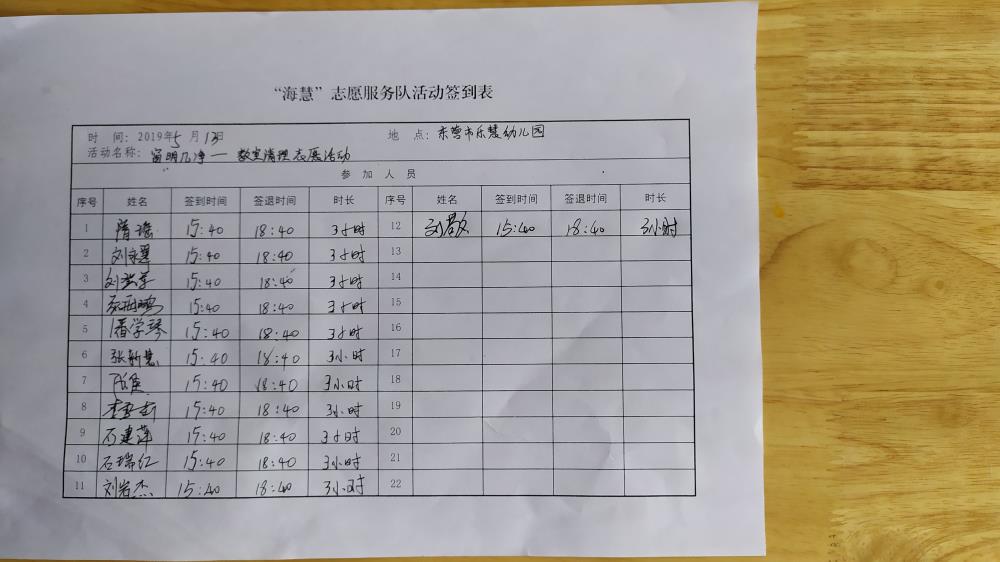 “海慧”志愿服务队活动签到表
时 间：2019年5月13日 地 点：东营市乐慧幼儿园
活动名称：窗明几净——教室清理志愿活动
参 加 人 员
序号 姓名 签到时间 签退时间 时长 序号 姓名 签到时间 签退时间 时长
1 隋瑶 15:40 18:40 3小时 12 刘敬 15:40 18:40 3小时
2 15:40 18:40 3小时 13
3 15:40 18:40 3小时 14
4 15:40 18:40 3小时 15
5 潘学琴 15:40 18:40 3小时 16
6 张新慧 15:40 18:40 3小时 17
7 15:40 18:40 3小时 18
8 15:40 18:40 3小时 19
9 石建萍 15:40 18:40 3小时 20
10 石瑞红 15:40 18:40 3小时 21
11 刘岩杰 15:40 18:40 3小时 22